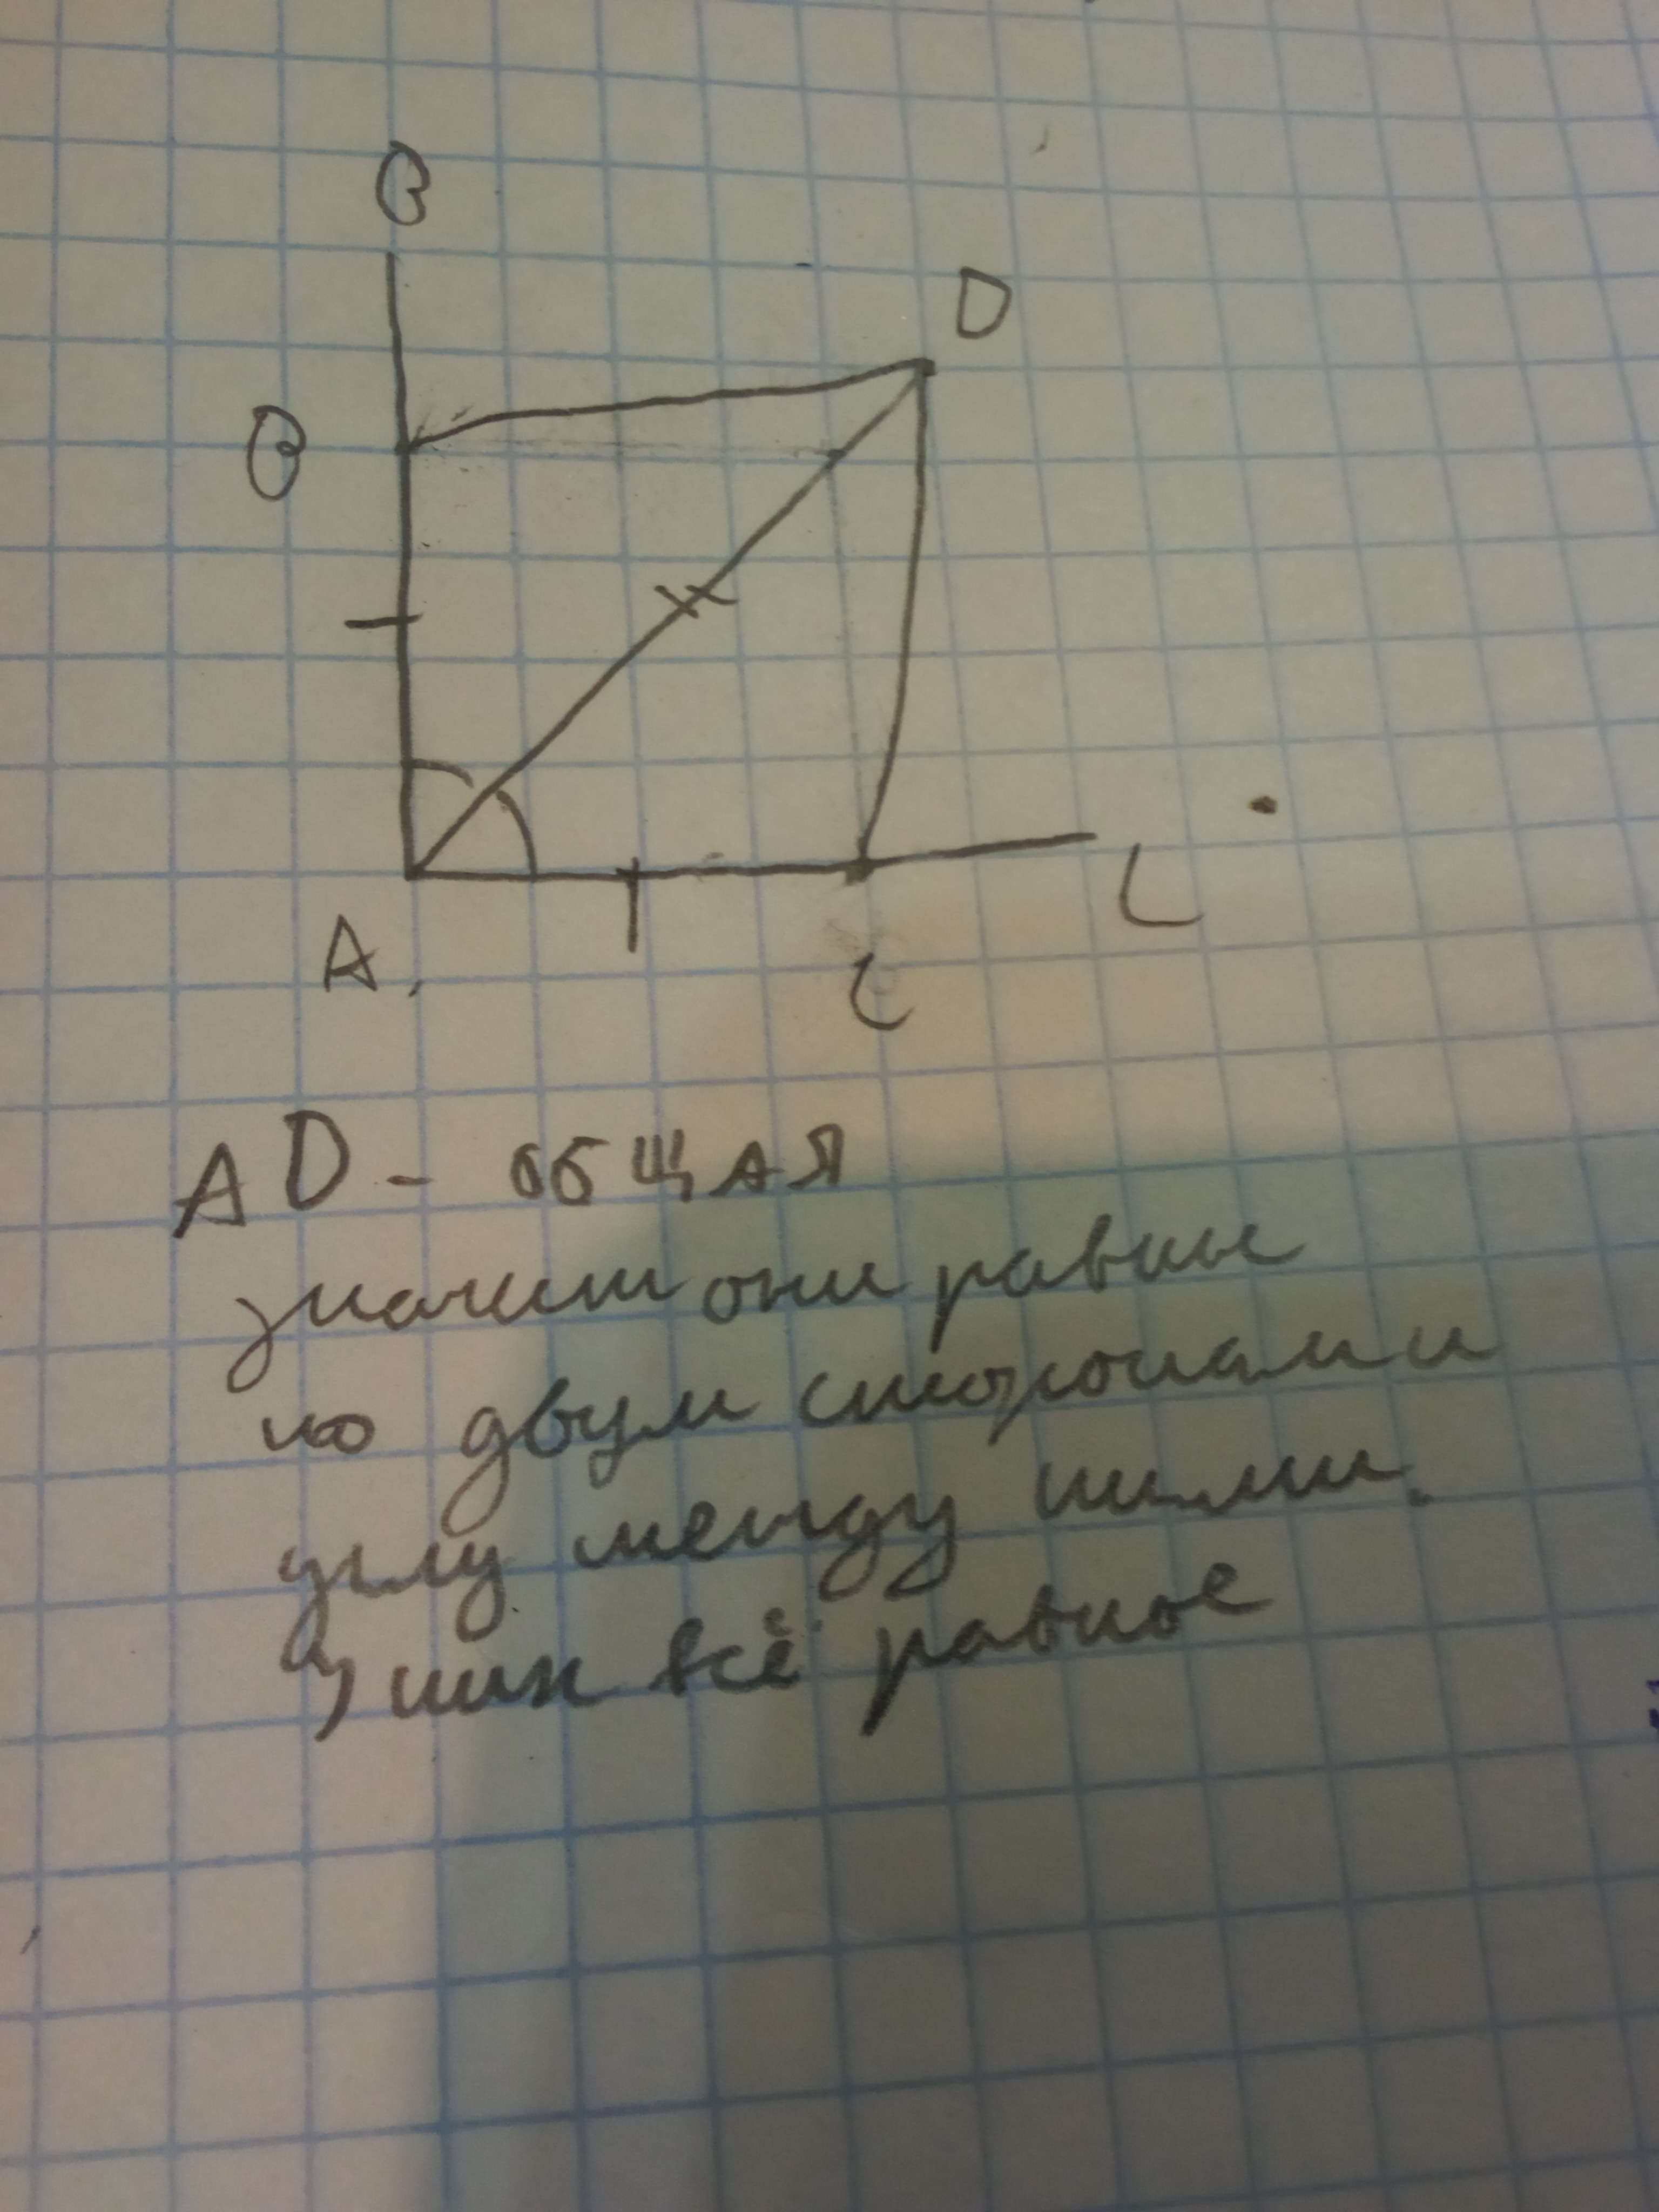 B
D
B
C
A
C
AD - общая
значит они равные
по двум сторонам и
углу между ними.
у них всё равное